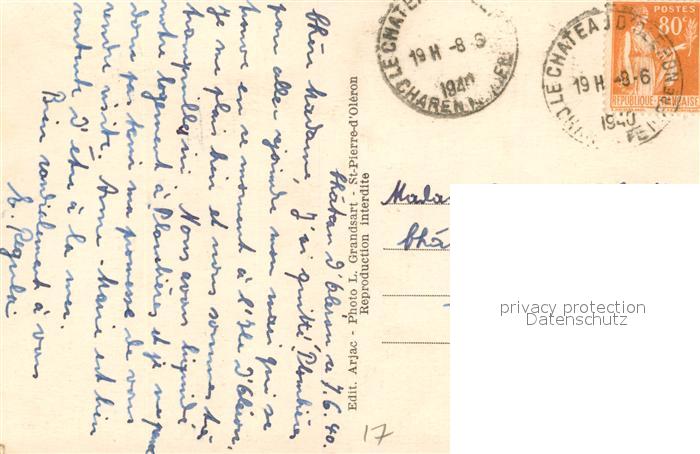 Château d'Oléron ce 7.6.40.
Chère Madame, J'ai quitté Plombières
pour aller joindre mon mari qui se
trouve en ce moment à l'Isle d'Oléron.
Je me plais bien et nous sommes très
tranquilles ici. Nous avons liquidé
notre logement à Plombières et je ne peux
donc pas tenir ma promesse de vous
rendre visite. Anne-Marie est bien
contente d'être à la mer.
Bien cordialement à vous
Edit. Arjac - Photo L. Grandsart - St-Pierre-d'Oléron
Reproduction interdite
LE CHATEAU D'OLERON
19 H -8-6
1940
POSTES
80c
REPUBLIQUE FRANÇAISE
LE CHATEAU D'OLERON
19 H -8-6
1940
privacy protection
Datenschutz
17